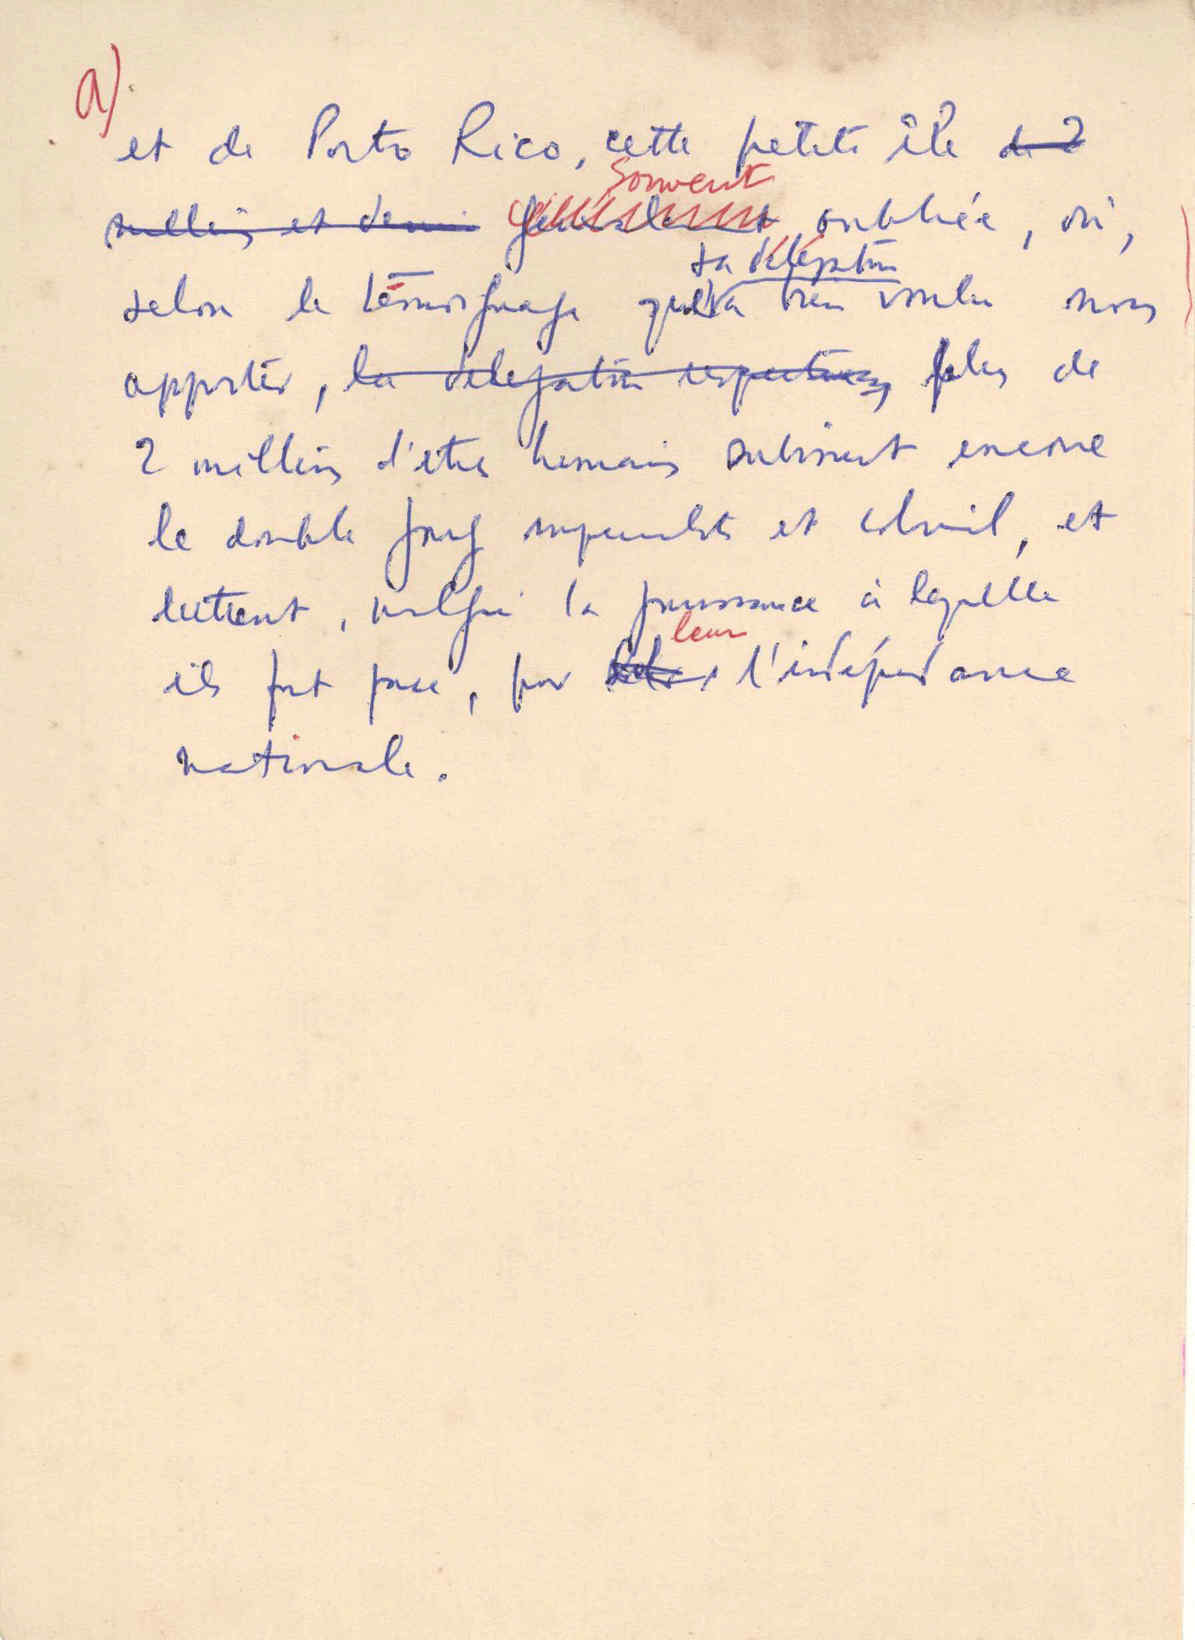 a)
et de Porto Rico, cette petite île de 2
millions et demi généralement souvent oubliée, où,
selon le témoignage qu'a sa délégation bien voulu nous
apporter, la délégation respective, plus de
2 millions d'être humains subissent encore
le double joug impérialiste et colonial, et
luttent, malgré la puissance à laquelle
ils font face, pour leur l'indépendance
nationale.